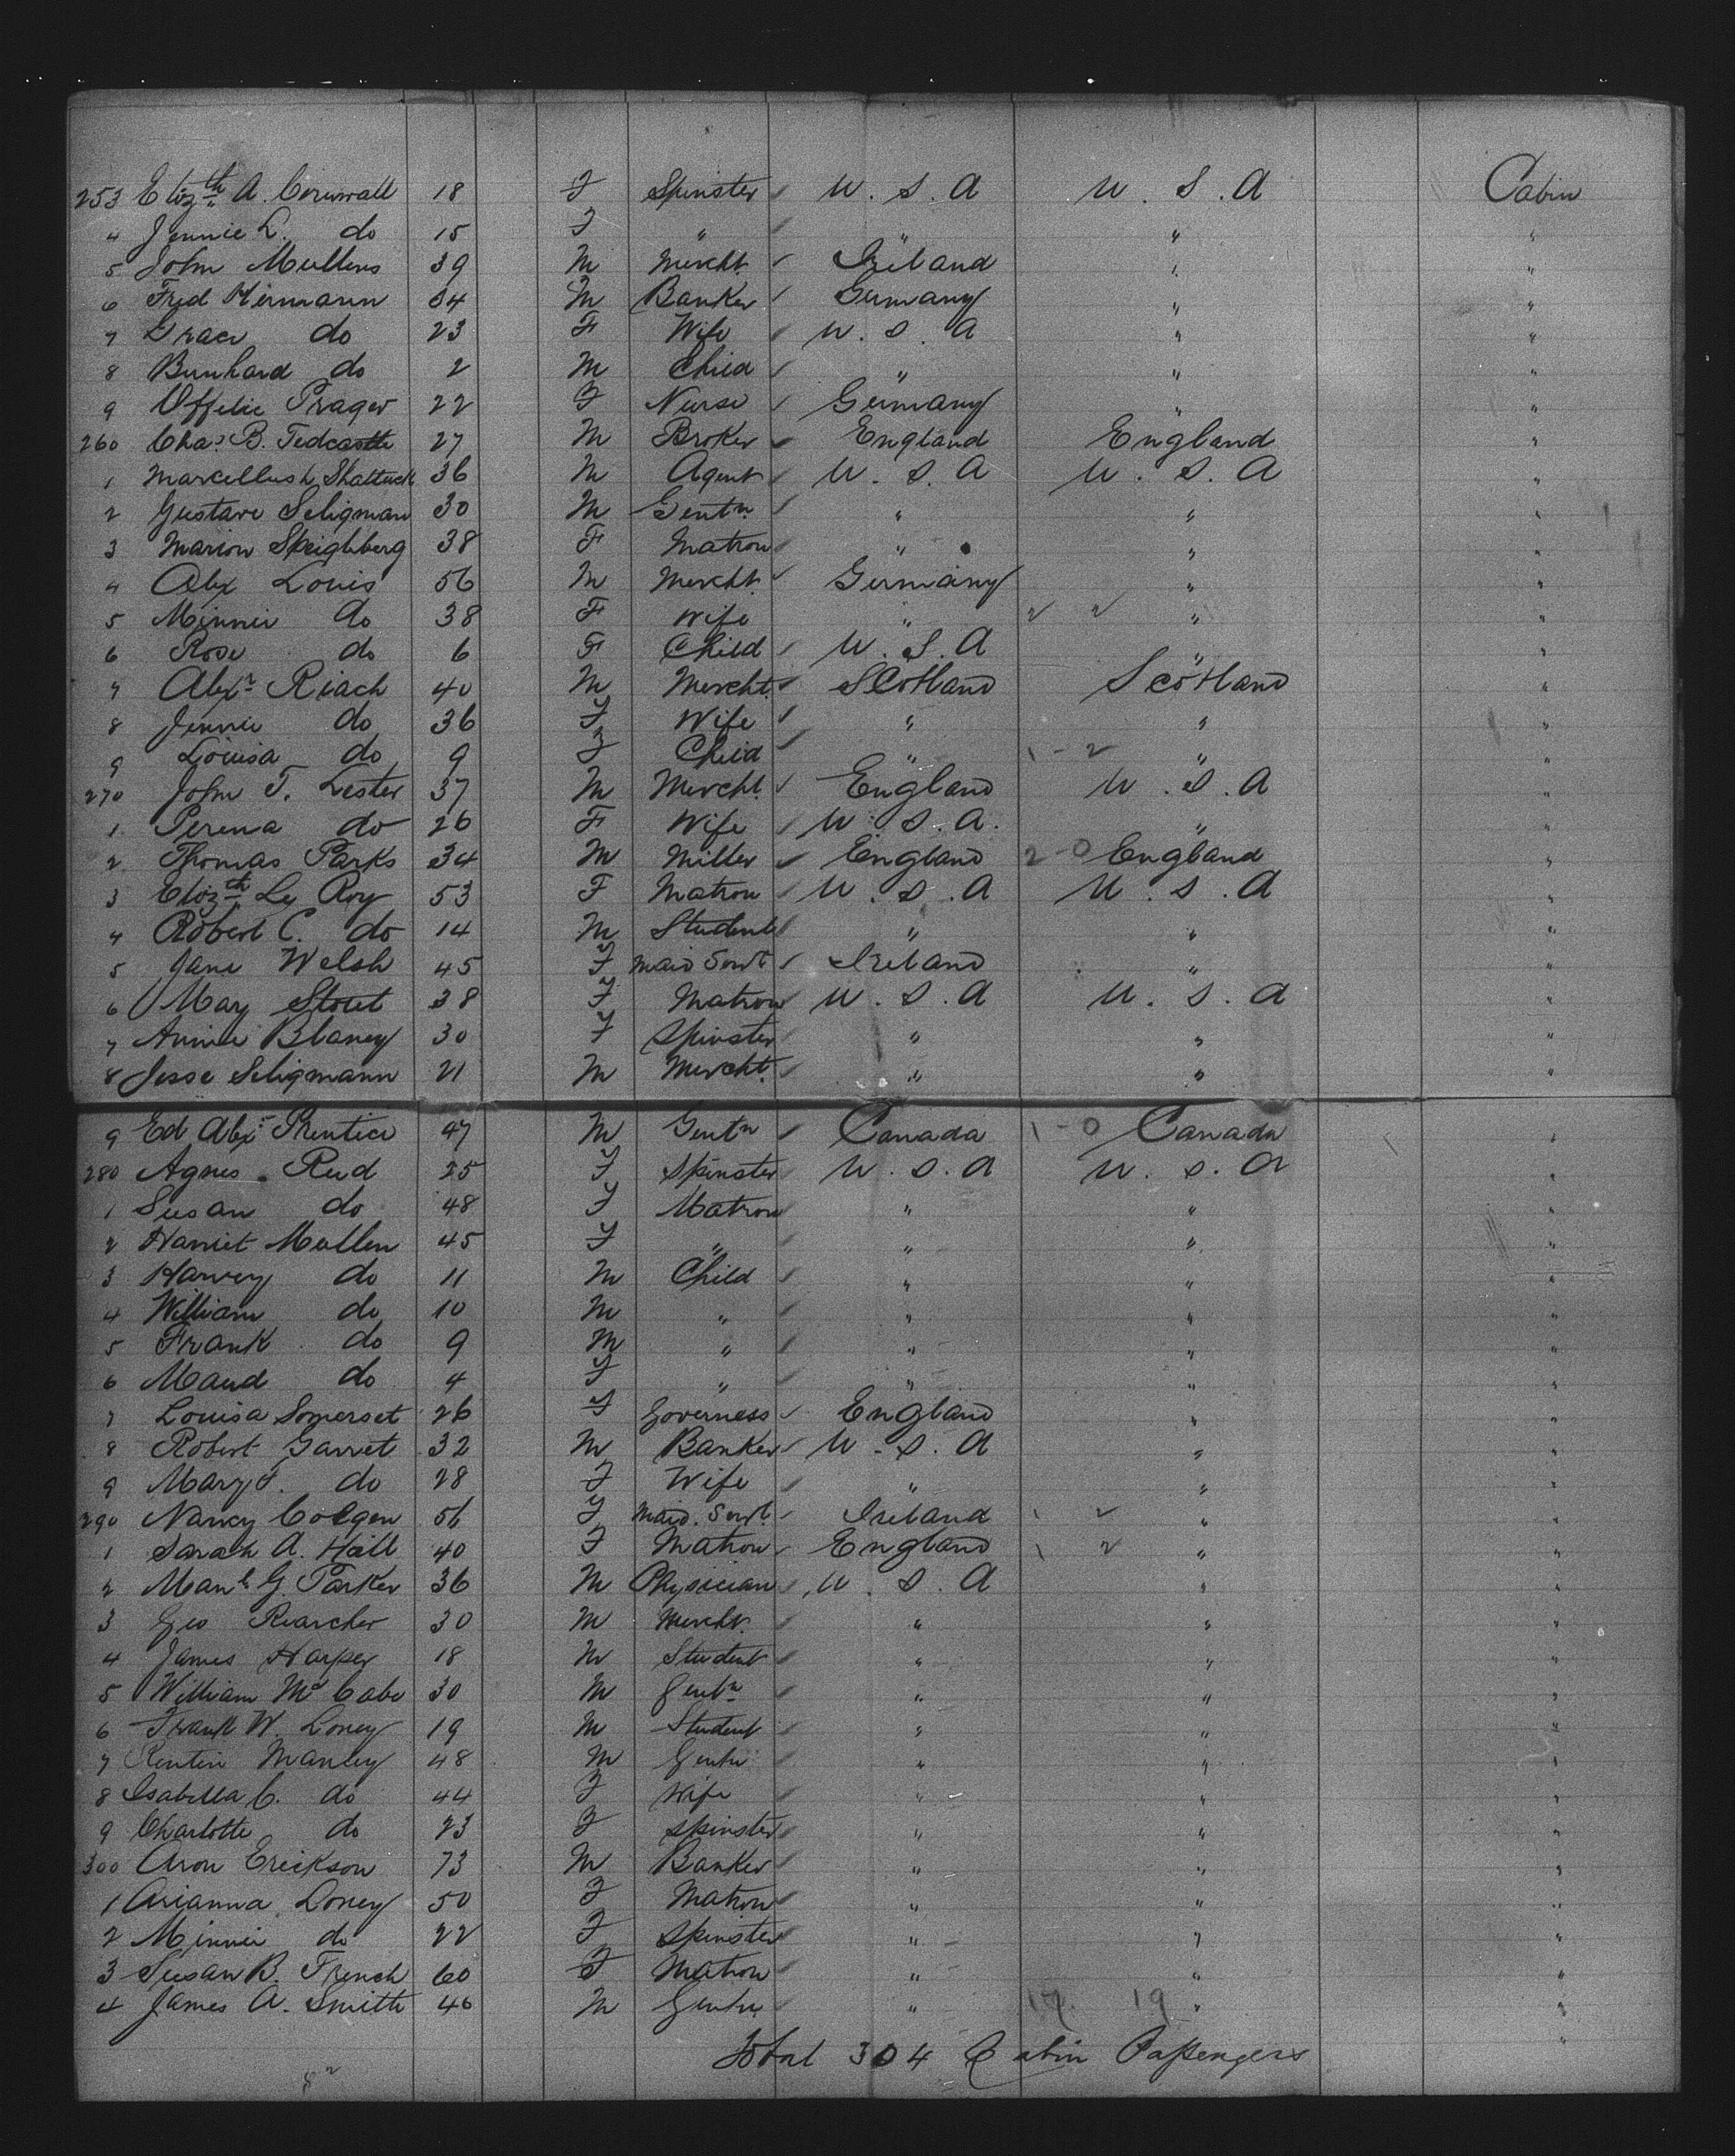 253 Eliz.th A. Cornwall 18 F Spinster U. S. A U. S. A Cabin
4 Jennie L. do 15 F " " " "
5 John Mullens 39 M Mercht. Ireland " "
6 Fred Hermann 34 M Banker Germany " "
7 Grace do 23 F Wife U. S. A " "
8 Bernhard do 2 M Child " " "
9 Offelie Prager 22 F Nurse Germany " "
260 Chas. B. Tedcastle 27 M Broker England England "
1 Marcellus L Shattuck 36 M Agent U. S. A U. S. A "
2 Gustave Seligman 30 M Gentn " " "
3 Marion Speighberg 38 F Matron " " "
4 Alex Louis 56 M Mercht. Germany " "
5 Minnie do 38 F Wife " 2 2 " "
6 Rose do 6 F Child U. S. A " "
7 Alexr Riach 40 M Mercht. Scotland Scotland "
8 Jennie do 36 F Wife " " "
9 Louisa do 9 F Child " 1 - 2 " "
270 John T. Lester 37 M Mercht. England U. S. A "
1 Perena do 26 F Wife U. S. A. " "
2 Thomas Parks 34 M Miller England 2 - 0 England "
3 Eliz.th Le Roy 53 F Matron U. S. A U. S. A "
4 Robert C. do 14 M Student " " "
5 Jane Welsh 45 F Maid Servt Ireland " "
6 Mary Stout 38 F Matron U. S. A U. S. A "
7 Annie Blaney 30 F Spinster " " "
8 Jesse Seligmann 21 M Mercht. " " "
9 Ed Alexr Prentice 47 M Gentn Canada 1 - 0 Canada "
280 Agnes Reid 25 F Spinster U. S. A U. S. A "
1 Susan do 48 F Matron " " "
2 Harriet Mullen 45 F " " " "
3 Harvey do 11 M Child " " "
4 William do 10 M " " " "
5 Frank do 9 M " " " "
6 Maud do 4 F " " " "
7 Louisa Somerset 26 F Governess England " "
8 Robert Garret 32 M Banker U. S. A " "
9 Mary F. do 28 F Wife " " "
290 Nancy Colgen 56 F Maid. Servt. Ireland 1 2 " "
1 Sarah A. Hall 40 F Matron England 1 2 " "
2 Manl G. Parker 36 M Physician U. S. A " "
3 Geo Rearcher 30 M Mercht. " " "
4 James Harper 18 M Student " " "
5 William Mc Cabe 30 M Gentn " " "
6 Frank W. Loney 19 M Student " " "
7 Manley 48 M Gentn " " "
8 Isabella C. do 44 F Wife " " "
9 Charlotte do 23 F Spinster " " "
300 Aron Erickson 73 M Banker " " "
1 Arianna Loney 50 F Matron " " "
2 Minnie do 22 F Spinster " " "
3 Susan B. French 60 F Matron " " "
4 James A. Smith 46 M Gentn " 17. 19 " "
Total 304 Cabin Passengers